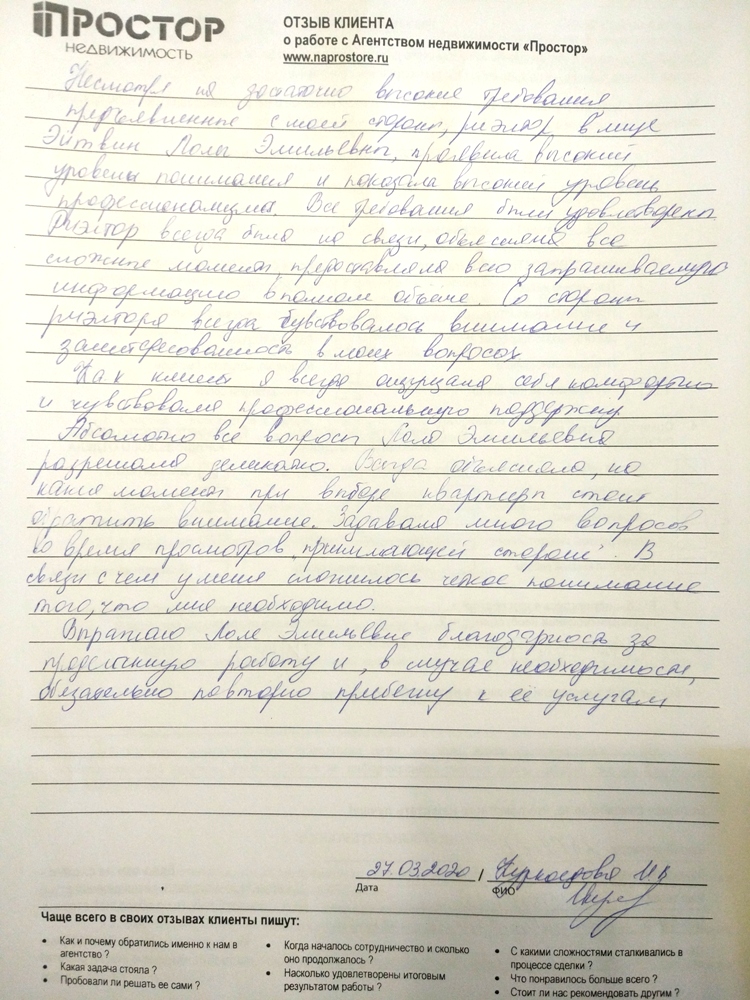 ПРОСТОР
НЕДВИЖИМОСТЬ
ОТЗЫВ КЛИЕНТА
о работе с Агентством недвижимости «Простор»
www.naprostore.ru
Несмотря на достаточно высокие требования
предъявленные с моей стороны, риэлтор, в лице
Эйтвин Лолы Эмильевны, проявила высокий
уровень понимания и показала высокий уровень
профессионализма. Все требования были удовлетворены
Риэлтор всегда была на связи, объясняла все
сложные моменты, предоставляла всю запрашиваемую
информацию в полном объёме. Со стороны
риэлтора всегда чувствовалось внимание и
заинтересованность в моих вопросах
Как клиент я всегда ощущала себя комфортно
и чувствовала профессиональную поддержку
Абсолютно все вопросы Лола Эмильевна
разрешала деликатно. Всегда объясняла, на
какие моменты при выборе квартиры стоит
обратить внимание. Задавала много вопросов
во время просмотров "принимающей стороне". В
связи с чем у меня сложилось четкое понимание
того, что мне необходимо.
Выражаю Лоле Эмильевне благодарность за
проделанную работу и, в случае необходимости,
обязательно повторно прибегну к её услугам
27.03.2020 /
Дата
ФИО
Чаще всего в своих отзывах клиенты пишут:
• Как и почему обратились именно к нам в
агентство ?
• Какая задача стояла ?
• Пробовали ли решать ее сами ?
• Когда началось сотрудничество и сколько
оно продолжалось ?
• Насколько удовлетворены итоговым
результатом работы ?
• С какими сложностями сталкивались в
процессе сделки ?
• Что понравилось больше всего ?
• Стоит ли нас рекомендовать другим ?